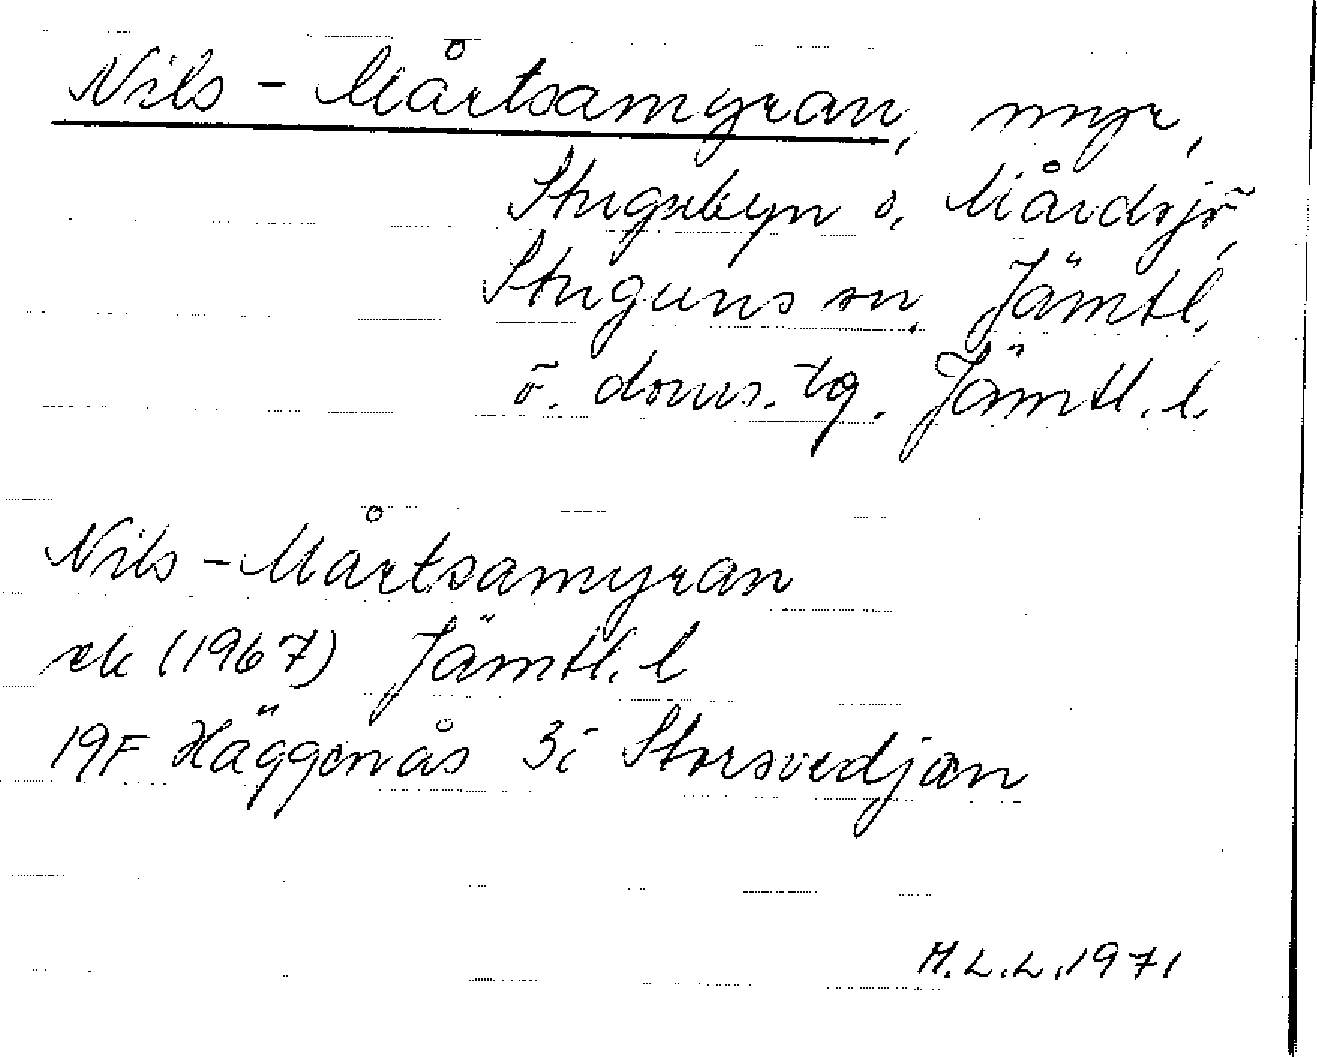 Nils-Mårtsamyran, myr,
Stugubyn o. Mårdsjö,
Stuguns sn, Jämtl.
ö. doms. tg. Jämtl. l.
Nils-Mårtsamyran
ek (1967) Jämtl. l
19F Häggenås 3i Storsvedjan
M.L.L. 1971